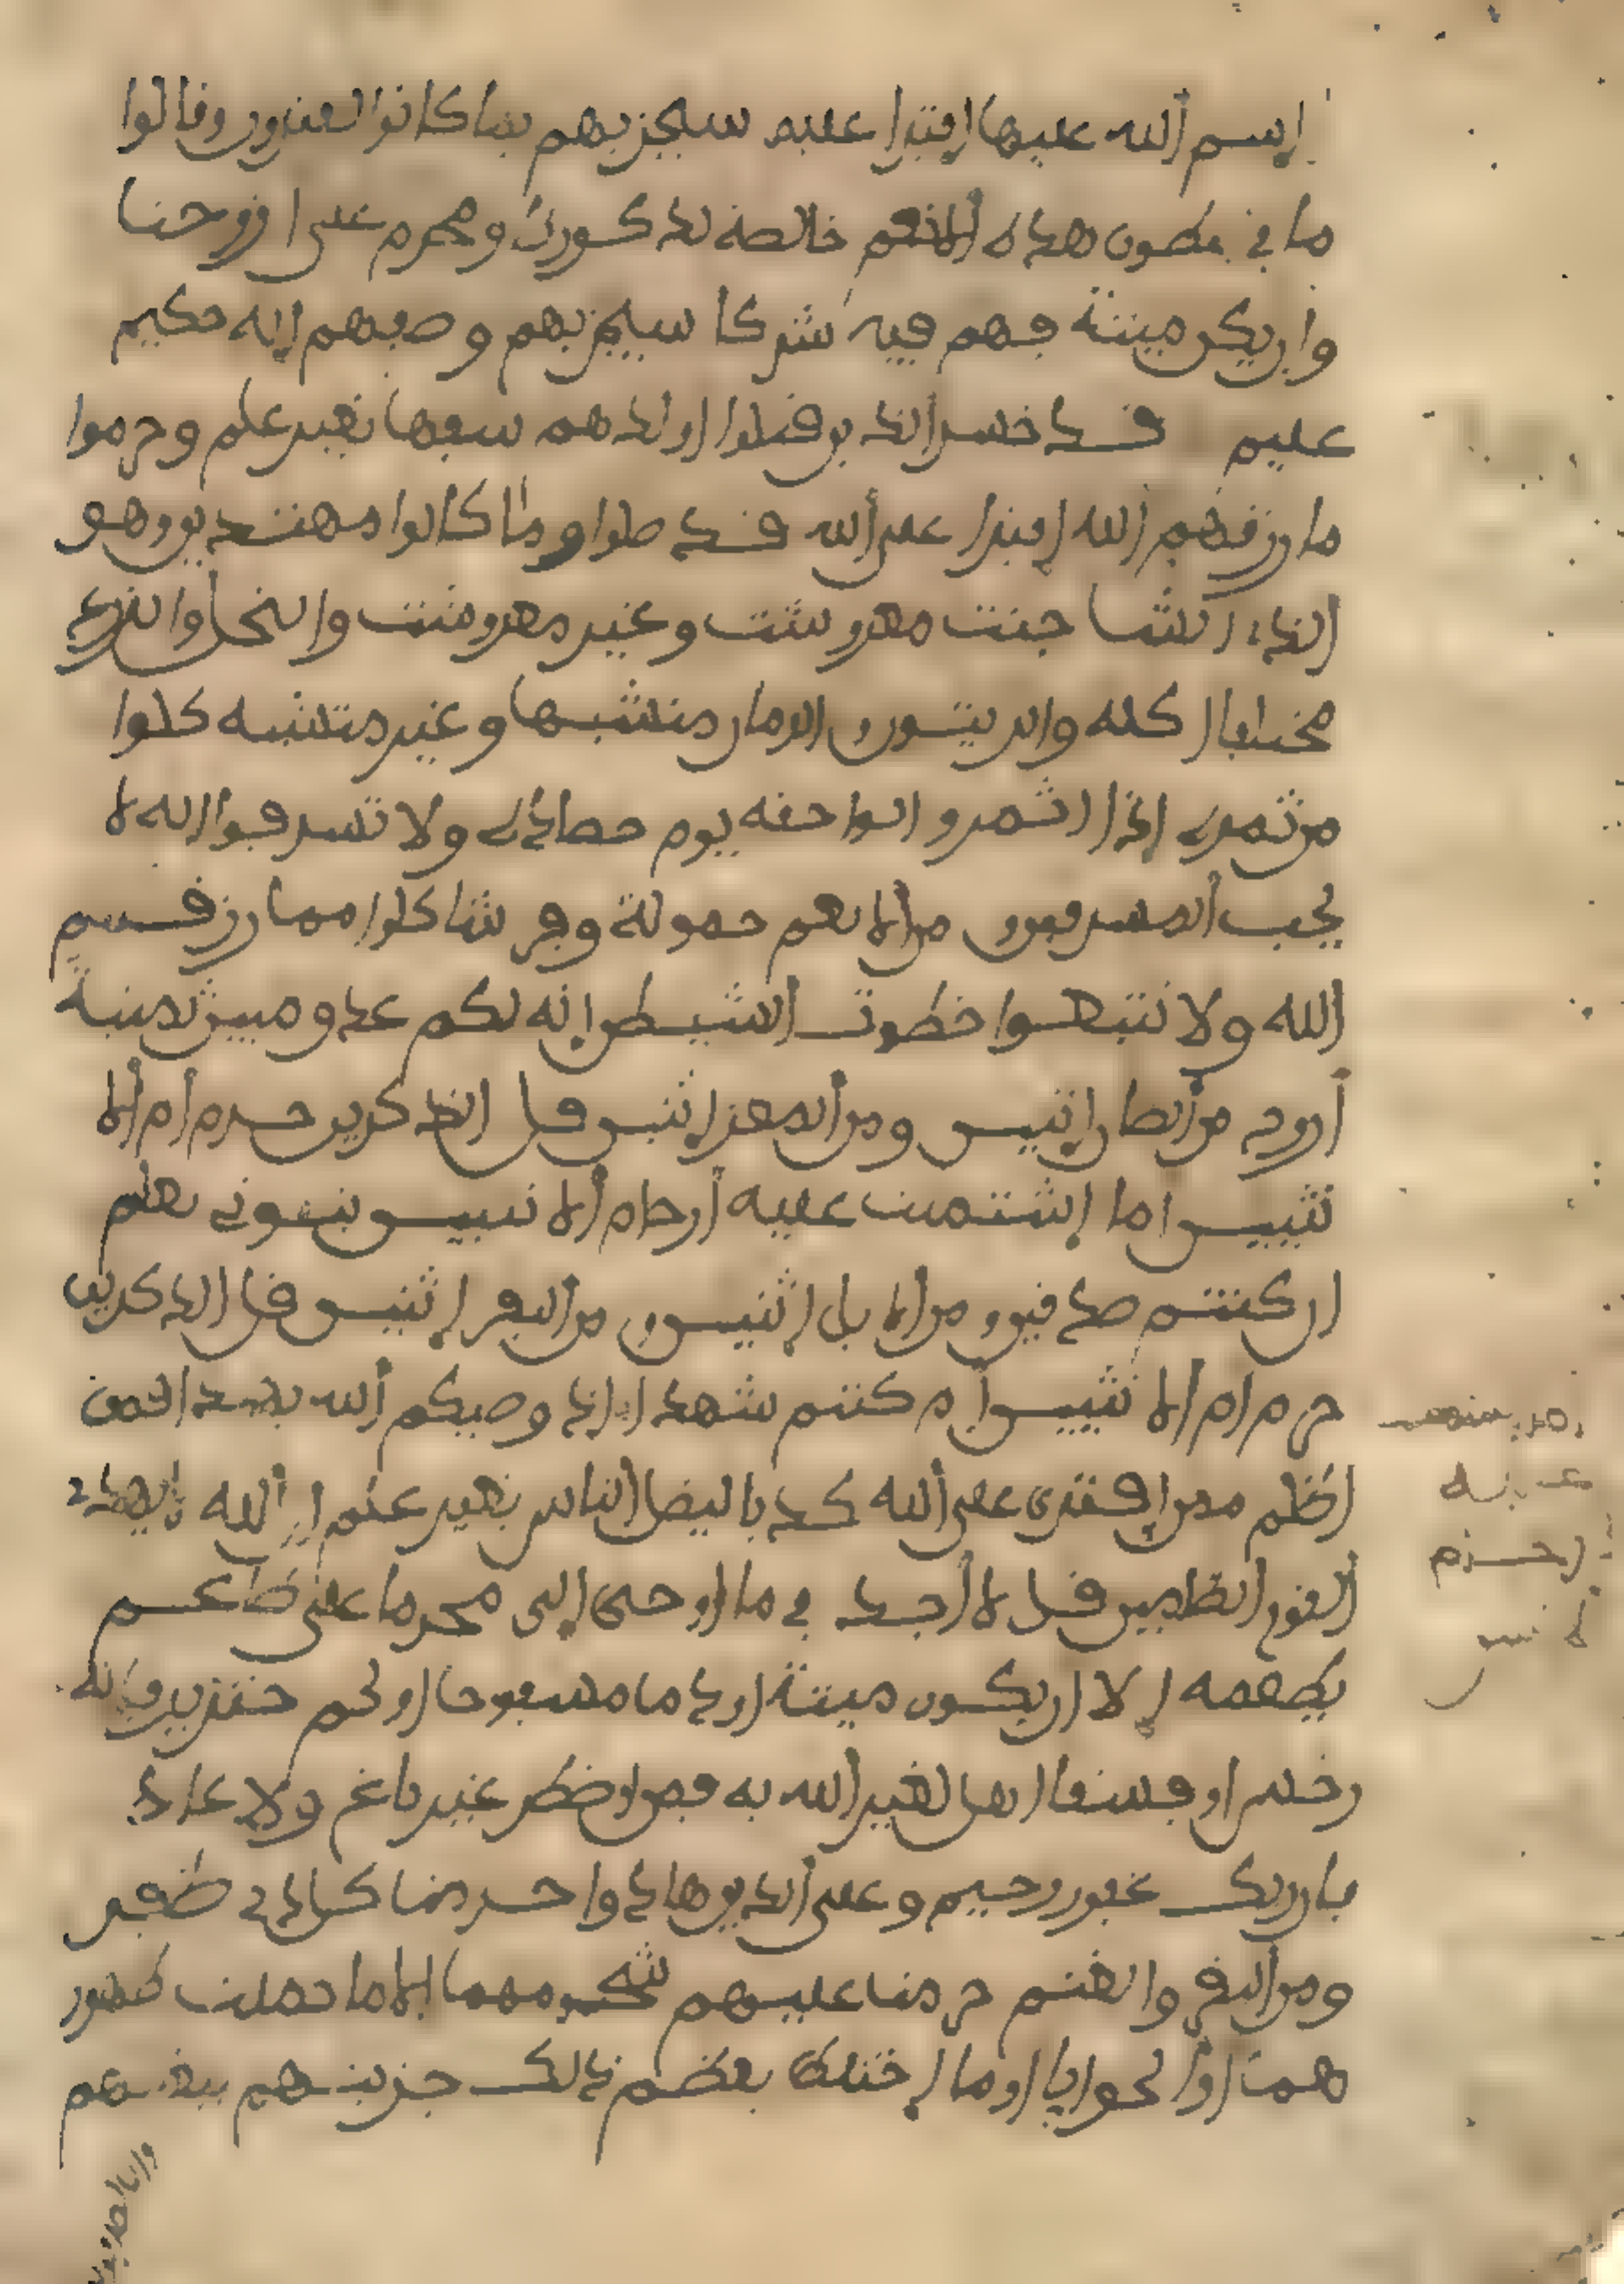 إسم ألله عليها إفترا عليه سيجزيهم بما كانوا يفترون وقالوا
ما في بطون هذه ألانعم خالصة لذكورنا ومحرم على ازوجنا
وان يكن ميتة فهم فيه شركا سيجزيهم وصفهم إنه حكيم
عليم قد خسر ألذين قتلوا اولدهم سفها بغير علم وحرموا
ما رزقهم ألله إفترا على ألله قد ضلوا وما كانوا مهتدين وهو
الذي انشا جنت معروشت وغير معروشت والنخل والزرع
مختلفا اكله والزيتون والرمان متشبها وغير متشبه كلوا
من ثمره إذا اثمر واتوا حقه يوم حصاده ولا تسرفوا انه لا
يحب ألمسرفين ومن ألانعم حمولة وفرشا كلوا مما رزقكم
ألله ولا تتبعوا خطوت ألشيطن إنه لكم عدو مبين ثمنية
أزوج من ألضان إثنين ومن ألمعز إثنين قل الذكرين حرم أم ألا
نثيين اما إشتملت عليه أرحام ألا نثيين نبوني بعلم
ان كنتم صدقين ومن ألابل إثنين ومن ألبقر إثنين قل الذكرين
حرم ام ألا نثيين أم كنتم شهدا اذ وصيكم ألله بهذا فمن
اظلم ممن إفترى على ألله كذبا ليضل ألناس بغير علم إن ألله لا يهدي
ألقوم ألظلمين قل لا أجد في ما اوحى إلى محرما على طاعم
يطعمه إلا ان يكون ميتة او دما مسفوحا او لحم خنزير فإنه
رجس او فسقا اهل لغير ألله به فمن اضطر غير باغ ولا عاد
فان ربك غفور رحيم وعلى ألذين هادوا حرمنا كل ذي ظفر
ومن ألبقر والغنم حرمنا عليهم شحومهما إلا ما حملت ظهور
هما او ألحوايا او ما إختلط بعظم ذلك جزينهم ببغيهم